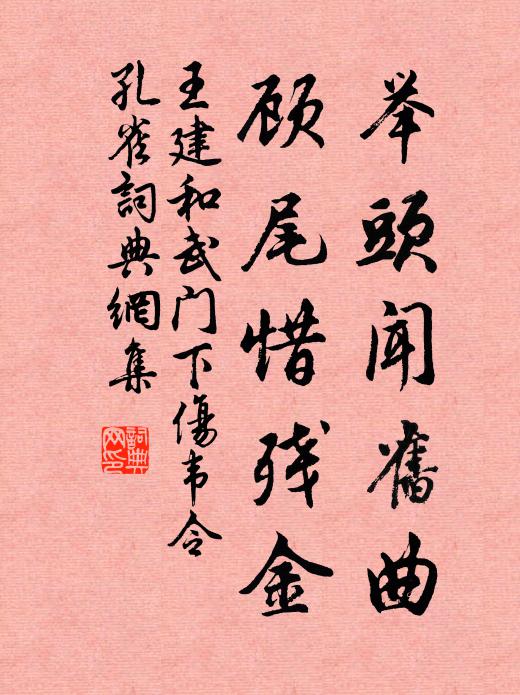 举頭闻舊曲
顾尾惜残金
王建和武门下傷韦令
孔雀詞典網集
詞典
网印